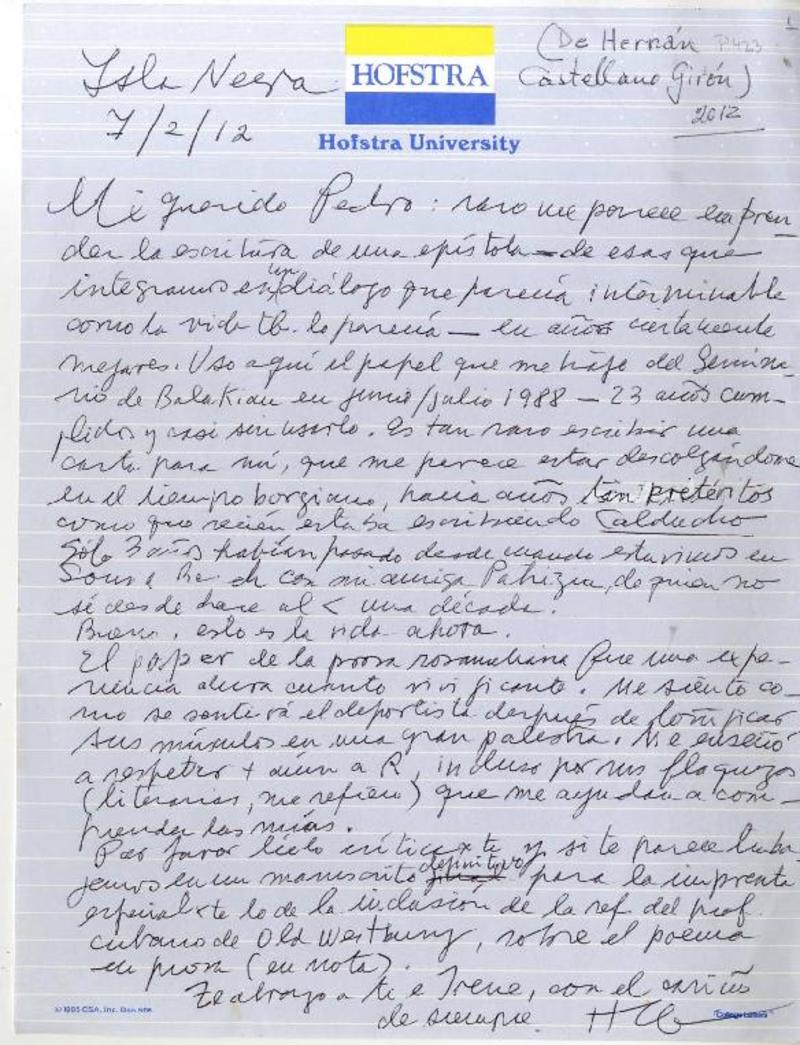 1
(De Hernán P423
Castellano Girón)
2012
Isla Negra
7/2/12
HOFSTRA
Hofstra University
Mi querido Pedro: raro me parece empren-
der la escritura de una epístola — de esas que
integramos en un diálogo que parecía interminable
como la vida tb. lo parecía — en años ciertamente
mejores. Uso aquí el papel que me traje del Semina-
rio de Balakian en junio/julio 1988 — 23 años cum-
plidos y casi sin usarlo. Es tan raro escribir una
carta para mí, que me parece estar descolgándome
en el tiempo borgiano, hacia años tan pretéritos
como que recién estaba escribiendo Calducho
Sólo 3 años habían pasado desde cuando estuvimos en
con mi amiga Patrizia, de quien no
sé desde hace al < una década.
Bueno, esto es la vida ahora.
El paper de la prosa rosameliana fue una expe-
riencia dura cuanto vivificante. Me siento co-
mo se sentirá el deportista después de tonificar
sus músculos en una gran palestra. Me enseñó
a respetar + aún a R, incluso por sus flaquezas
(literarias, me refiero) que me ayudan a com-
prender las mías.
Por favor léelo críticax te y si te parece traba-
jemos en un manuscrito definitivo para la imprenta
especialxte lo de la inclusión de la ref. del prof.
cubano de Old Westbury, sobre el poema
en prosa (en nota).
Te abrazo a ti e Irene, con el cariño
de siempre.